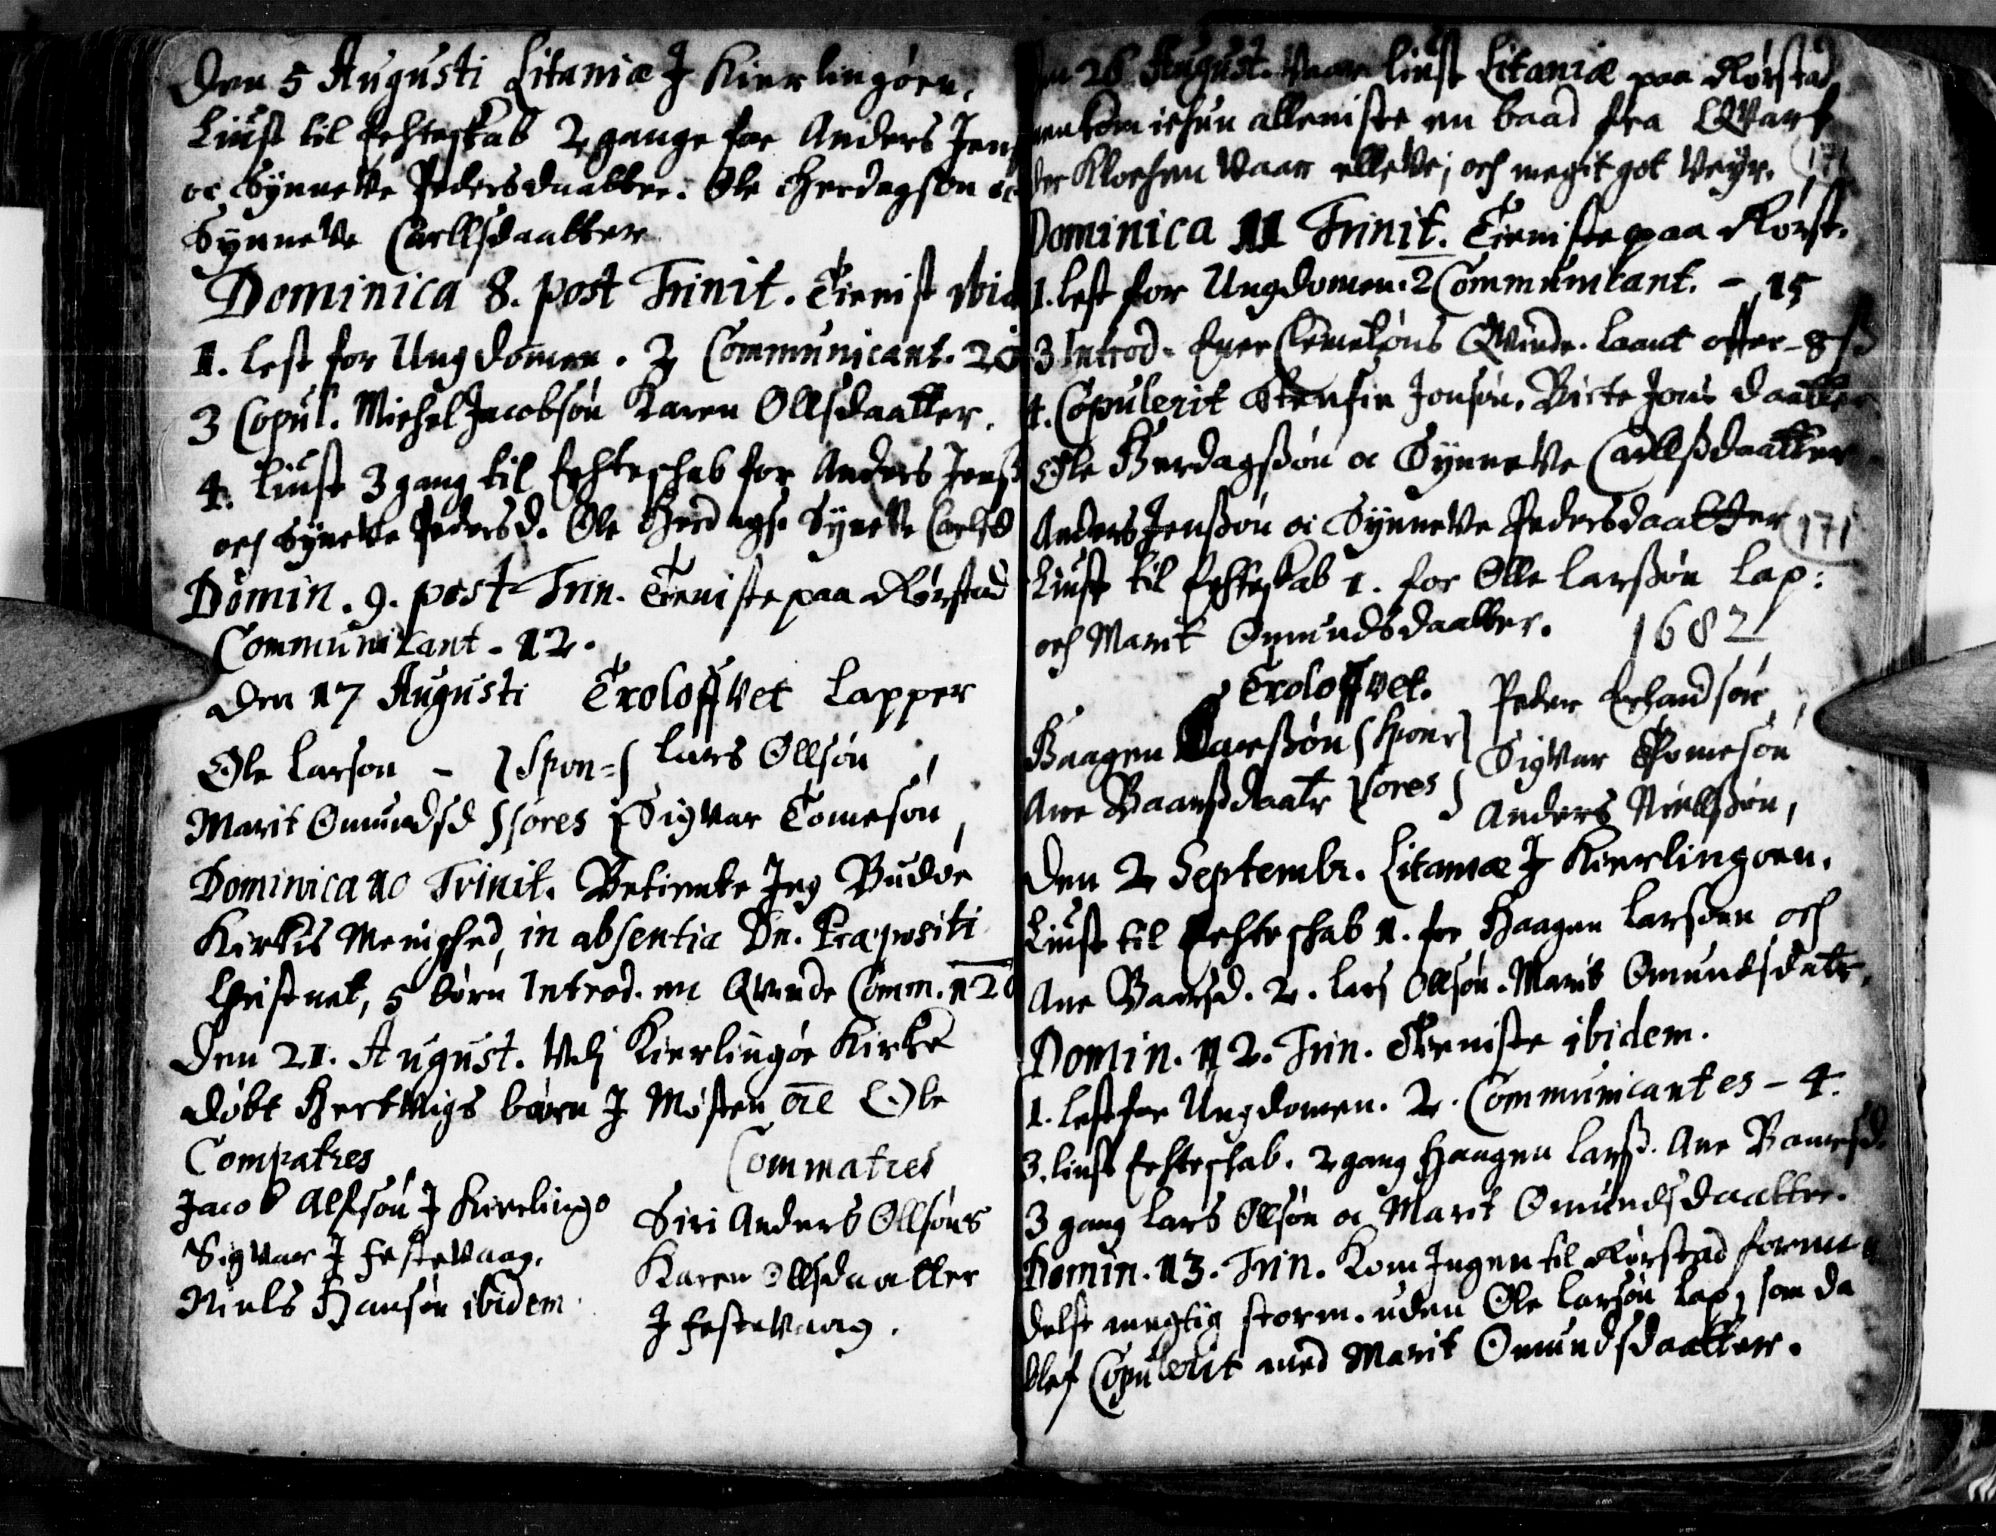 Den 5 Augusti Litaniæ J Kierlingøen,
Liust til Echteskab 2 gange for Anders Jens
oc Synneve Pedersdaatter. Ole Herdagson oc
Synneve Carllsdaatter
Dominica 8. post Trinit. Tienist ibid
1. lest for Ungdomen. 2 Communicant. 20
3 Copul. Michel Jacobsøn Karen Ollsdaatter.
4. Liust 3 gang til Echteschab for Anders Jenss
och Syneve Pedersd. Ole Herdags. Syneve Carlsd
Domin. 9. post Trin. Tieniste paa Rørstad
Communicant - 12.
Den 17 Augusti Troloffvet Lapper
Ole Larson - } Spon= { Lars Ollsøn,
Marit Omundsd } sores { Sigvar Tomesøn,
Dominica 10 Trinit. Betiente Jeg Budøe
Kirkis Menighed, in absentia Dn. Præpositi
Christnet, 5 børn Introd. en Qvinde Comm. 120
Den 21. August. Ved Kierlingøe Kirke
døbt Hertvigs barn J Møsten Ole
Compatres
Jacob Alfsøn J Kierlingø
Sigvar J Festevaag.
Niels Hansøn ibidem.
Commatres
Siri Anders Ollsøns
Karen Ollsdaatter
J Festevaag.
Den 26 August. Vaar liust Litaniæ paa Rørstad
men kom ichun alleniste en baad fra Qvarf
der Klochen Vaar elleve; och megit got Veyr. 171
Dominica 11 Trinit. Tieniste paa Rørst.
1. lest for Ungdomen. 2 Communicant. - 15
3 Introd. Clemetsøns Qvinde. laant offer - 8 ß
4. Copulerit Stenfin Jonsøn. Birte Jons daatter
Ole Herdagssøn oc Synneve Carllssdaatter
Anders Jenssøn oc Synneve Pedersdaatter 171
Liust til Echteskab 1. for Olle Larssøn Lap:
och Marit Omundsdaatter. 1682
Troloffvet.
Haagen Larssøn { Spon= } Peder Erhandsøn,
Ane Baarssdaatr } sores } Sigvar Tomesøn
Anders Nielssøn,
Den 2 Septembr. Litaniæ J Kierlingøen.
Liust til Echteschab 1. for Haagen Larsøen och
Ane Baarsd. 2. Lars Ollsøn. Marit Omundsdatr.
Domin. 12. Trin. Tieniste ibidem.
1. lest for Ungdomen. 2. Communicantes - 4.
3. liust Echteschab. 2 gang Haagen Larss. Ane Baarsd.
3 gang Lars Ollsøn oc Marit Omundsdaatter.
Domin. 13. Trin. Kom Ingen til Rørstad forme
delst megtig storm. uden Ole Larsøn Lap, som da
blef Copulerit med Marit Omundsdaatter.